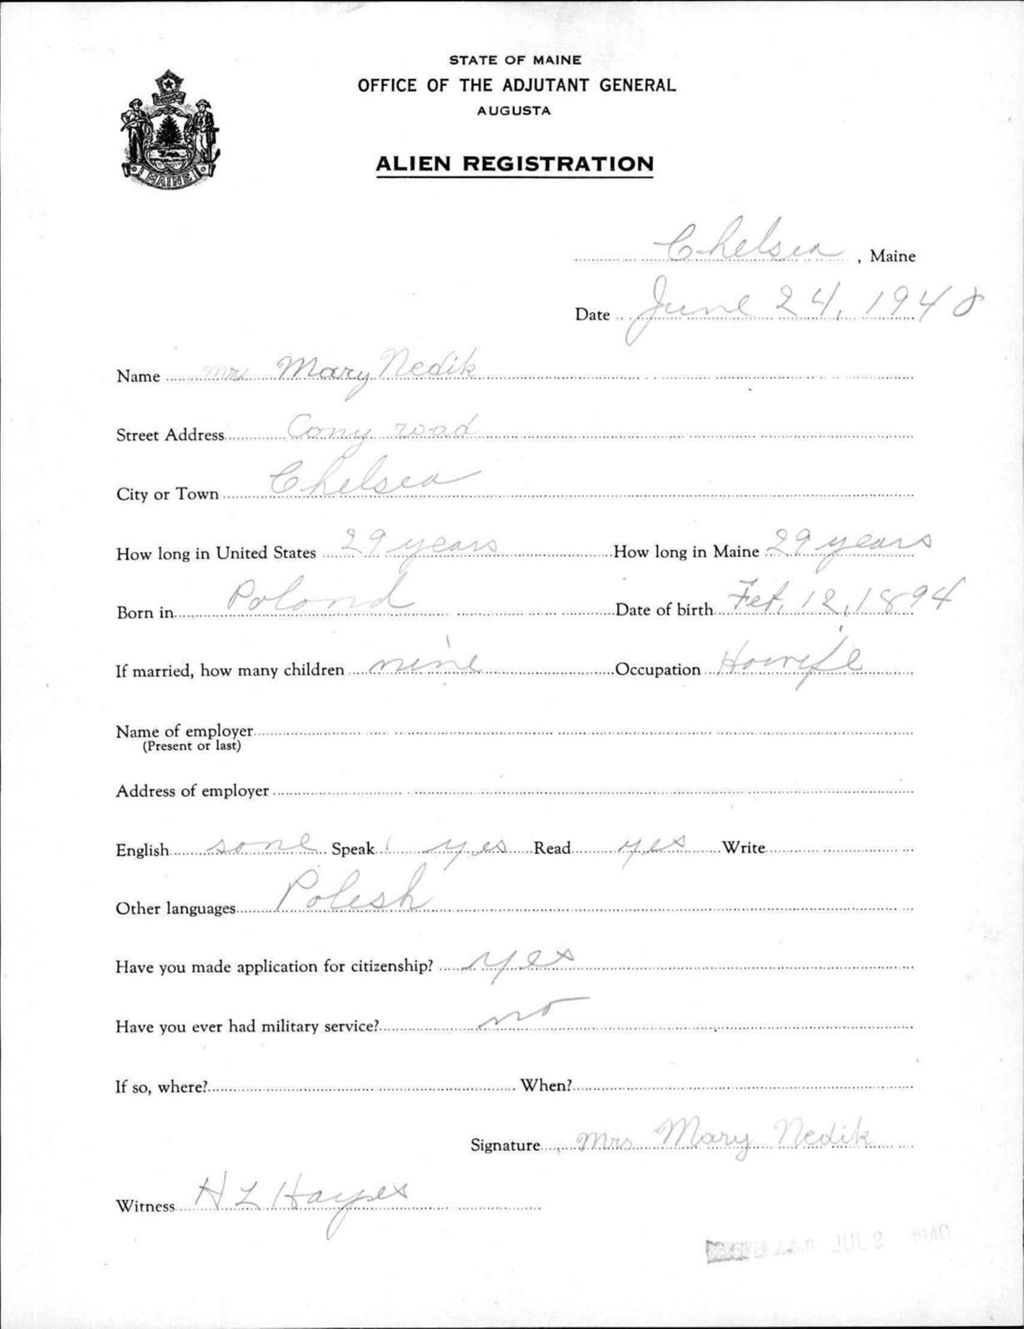 STATE OF MAINE
OFFICE OF THE ADJUTANT GENERAL
AUGUSTA
ALIEN REGISTRATION
MAINE
Chelsea, Maine
Date June 24, 1940
Name Mrs Mary Nedik
Street Address Cony road
City or Town Chelsea
How long in United States 29 years How long in Maine 29 years
Born in Poland Date of birth Feb, 12, 1894
If married, how many children nine Occupation Howife
Name of employer
(Present or last)
Address of employer
English some Speak yes Read yes Write
Other languages Polesh
Have you made application for citizenship? yes
Have you ever had military service? no
If so, where? When?
Signature Mrs Mary Nedik
Witness H L Hayes
A.G.O. JUL 2 1940